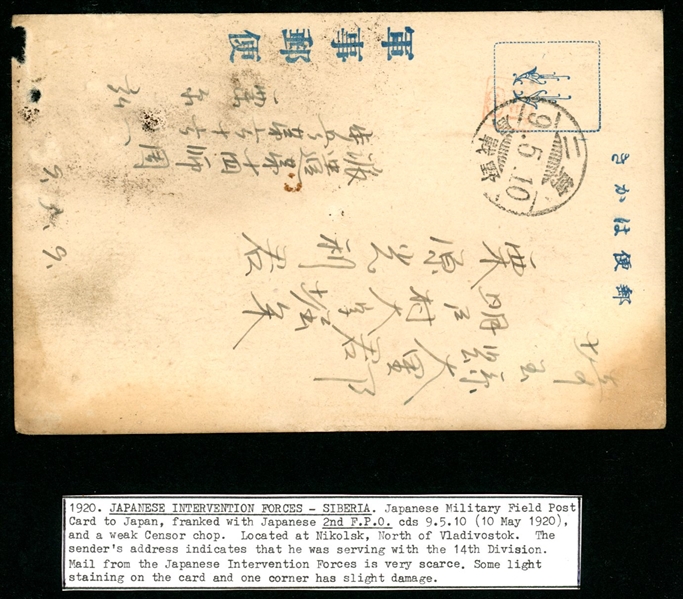 軍事郵便
郵便はかき
9.5.10
埼玉縣大里郡
明戸村大字
栗原光利君
派遣第十四師団
歩兵第六十
1920. JAPANESE INTERVENTION FORCES - SIBERIA. Japanese Military Field Post
Card to Japan, franked with Japanese 2nd F.P.O. cds 9.5.10 (10 May 1920),
and a weak Censor chop. Located at Nikolsk, North of Vladivostok. The
sender's address indicates that he was serving with the 14th Division.
Mail from the Japanese Intervention Forces is very scarce. Some light
staining on the card and one corner has slight damage.